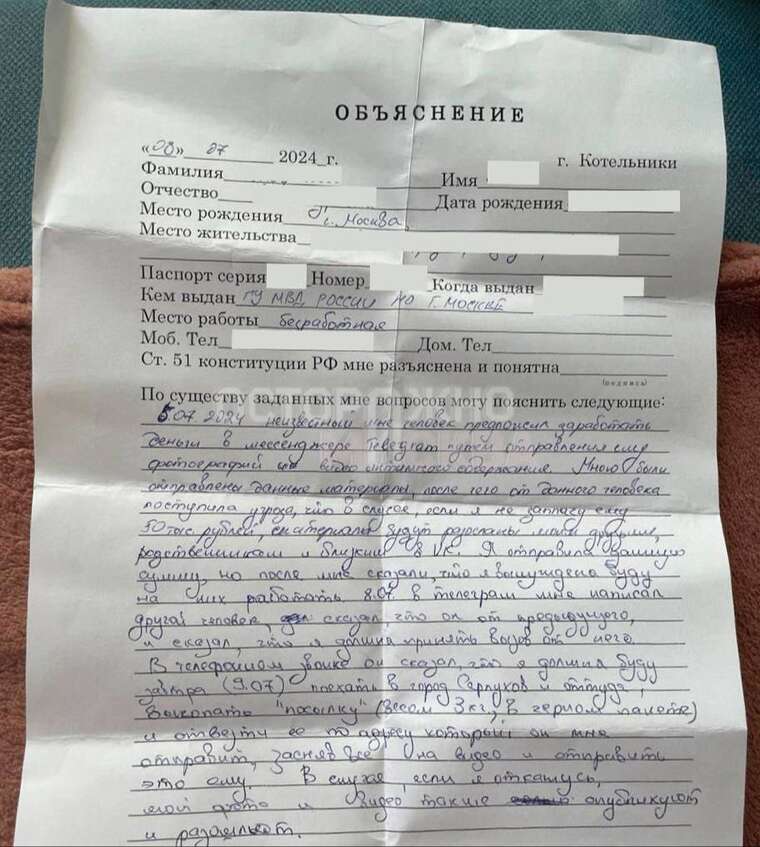 ОБЪЯСНЕНИЕ
«08» 07 2024 г. г. Котельники
Фамилия Имя
Отчество Дата рождения
Место рождения г. Москва
Место жительства
Паспорт серия Номер Когда выдан
Кем выдан ГУ МВД РОССИИ ПО Г. МОСКВЕ
Место работы безработная
Моб. Тел Дом. Тел
Ст. 51 конституции РФ мне разъяснена и понятна
(подпись)
По существу заданных мне вопросов могу пояснить следующие:
ОСТОРОЖНО
5.07.2024 неизвестный мне человек предложил заработать
деньги в мессенджере Телеграм путем отправления ему
фотографий и видео интимного содержания. Мною были
отправлены данные материалы, после чего от данного человека
поступила угроза, что в случае, если я не заплачу ему
50 тыс. рублей, материалы будут разосланы моим друзьям,
родственникам и близким в ВК. Я отправила данную
сумму, но после мне сказали, что я вынуждена буду
на них работать 8.07. в телеграм мне написал
другой человек, сказал, что он от предыдущего,
и сказал, что я должна принять вызов от него.
В телефонном звонке он сказал, что я должна буду
завтра (9.07) поехать в город Серпухов и оттуда
выкопать "посылку" (весом 3 кг, в черном пакете)
и отвезти ее по адресу который он мне
отправит, засняв все на видео и отправить
это ему. В случае, если я откажусь,
мои фото и видео также опубликуют
и разошлют.